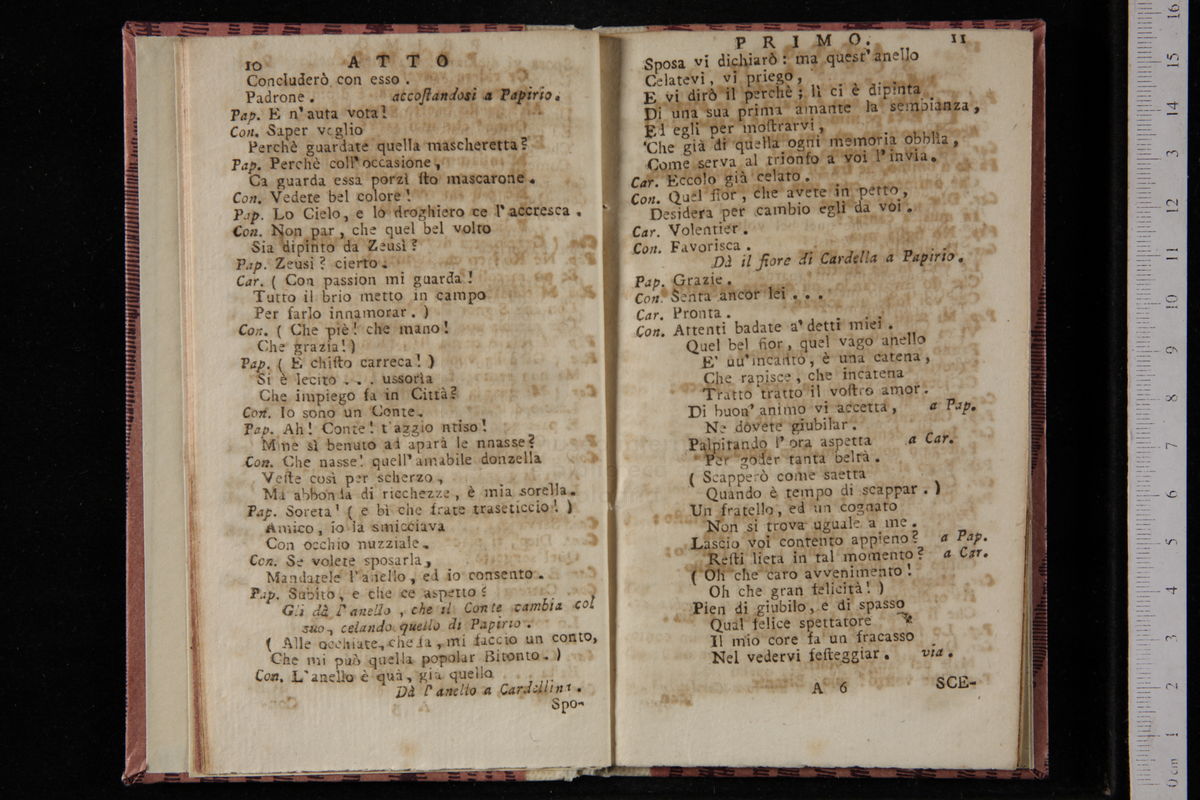 10 ATTO
Concluderò con esso.
Padrone. accoſtandosi a Papirio.
Pap. E n'auta vota!
Con. Saper voglio
Perchè guardate quella mascheretta?
Pap. Perchè coll'occasione,
Ca guarda essa porzì ſto mascarone.
Con. Vedete bel colore!
Pap. Lo Cielo, e lo droghiero ce l'accresca.
Con. Non par, che quel bel volto
Sia dipinto da Zeusi?
Pap. Zeusi? cierto.
Car. ( Con passion mi guarda!
Tutto il brio metto in campo
Per farlo innamorar. )
Con. ( Che piè! che mano!
Che grazia! )
Pap. ( E chiſto carreca! )
Si è lecito ... ussoria
Che impiego fa in Città?
Con. Io sono un Conte.
Pap. Ah! Conte! t'aggio ntiso!
Mne sì benuto ad aparà le nnasse?
Con. Che nasse! quell'amabile donzella
Veſte così per scherzo,
Ma abbonda di ricchezze, è mia sorella.
Pap. Soreta! ( e bì che frate traseticcio! )
Amico, io la smicciava
Con occhio nuzziale.
Con. Se volete sposarla,
Mandatele l'anello, ed io consento.
Pap. Subito, e che ce aspetto?
Gli dà l'anello, che il Conte cambia col
suo, celando quello di Papirio.
( Alle occhiate, che fa, mi faccio un conto,
Che mi può quella popolar Bitonto. )
Con. L'anello è quà, già quello
Dà l'anello a Cardellina.
Spo-
PRIMO. 11
Sposa vi dichiarò: ma queſt'anello
Celatevi, vi priego,
E vi dirò il perchè; lì ci è dipinta
Di una sua prima amante la sembianza,
Ed egli per moſtrarvi,
Che già di quella ogni memoria obblìa,
Come serva al trionfo a voi l'invia.
Car. Eccolo già celato.
Con. Quel fior, che avete in petto,
Desidera per cambio egli da voi.
Car. Volentier.
Con. Favorisca.
Dà il fiore di Cardella a Papirio.
Pap. Grazie.
Con. Senta ancor lei ...
Car. Pronta.
Con. Attenti badate a' detti miei.
Quel bel fior, quel vago anello
E' un'incanto, è una catena,
Che rapisce, che incatena
Tratto tratto il voſtro amor.
Di buon' animo vi accetta, a Pap.
Ne dovete giubilar.
Palpitando l'ora aspetta a Car.
Per goder tanta beltà.
( Scapperò come saetta
Quando è tempo di scappar. )
Un fratello, ed un cognato
Non si trova uguale a me.
Lascio voi contento appieno? a Pap.
Reſti lieta in tal momento? a Car.
( Oh che caro avvenimento!
Oh che gran felicità! )
Pien di giubilo, e di spasso
Qual felice spettatore
Il mio core fa un fracasso
Nel vedervi feſteggiar. via.
A 6 SCE-
16
15
14
13
12
11
10
9
8
7
6
5
4
3
2
1
0 cm